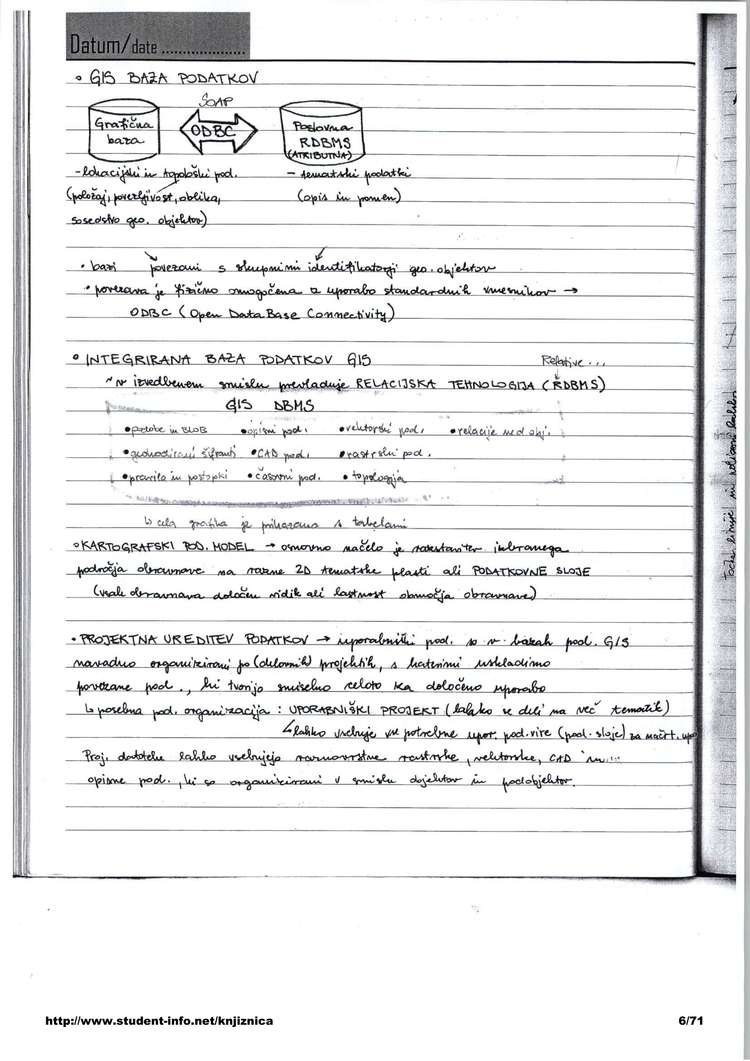 Datum/date ....................
• GIS BAZA PODATKOV
SOAP
Grafična baza
ODBC
Poslovna RDBMS (ATRIBUTNA)
- lokacijski in topološki pod.
(položaj, povezljivost, oblika,
sosedstvo geo. objektov)
- tematski podatki
(opis in pomen)
• bazi povezani s skupnimi identifikatorji geo. objektov
• povezava je fizično omogočena z uporabo standardnih vmesnikov →
ODBC (Open DataBase Connectivity)
• INTEGRIRANA BAZA PODATKOV GIS
Relative...
~ v izvedbenem smislu prevladuje RELACIJSKA TEHNOLOGIJA (RDBMS)
GIS DBMS
• podobe in BLOB • opisni pod. • vektorski pod. • relacije med obj.
• geokodirani šifranti • CAD pod. • rastrski pod.
• pravila in postopki • časovni pod. • topologija
↳ cela grafika je prikazana s tabelami
• KARTOGRAFSKI POD. MODEL → osnovno načelo je razstavitev izbranega
področja obravnave na razne 2D tematske plasti ali PODATKOVNE SLOJE
(vsak obravnava določen vidik ali lastnost območja obravnave)
• PROJEKTNA UREDITEV PODATKOV → uporabniški pod. so v bazah pod. GIS
navadno organizirani po (delovnih) projektih, s katerimi uskladimo
povezane pod., ki tvorijo smiselno celoto za določeno uporabo
↳ posebna pod. organizacija : UPORABNIŠKI PROJEKT (lahko se deli na več tematik)
↳ lahko vsebuje vse potrebne upor. pod. vire (pod. sloje) za načrt. upo
Proj. datoteke lahko vsebujejo raznovrstne rastrske, vektorske, CAD in...
opisne pod., ki so organizirani v smislu objektov in podobjektov.
http://www.student-info.net/knjiznica
6/71